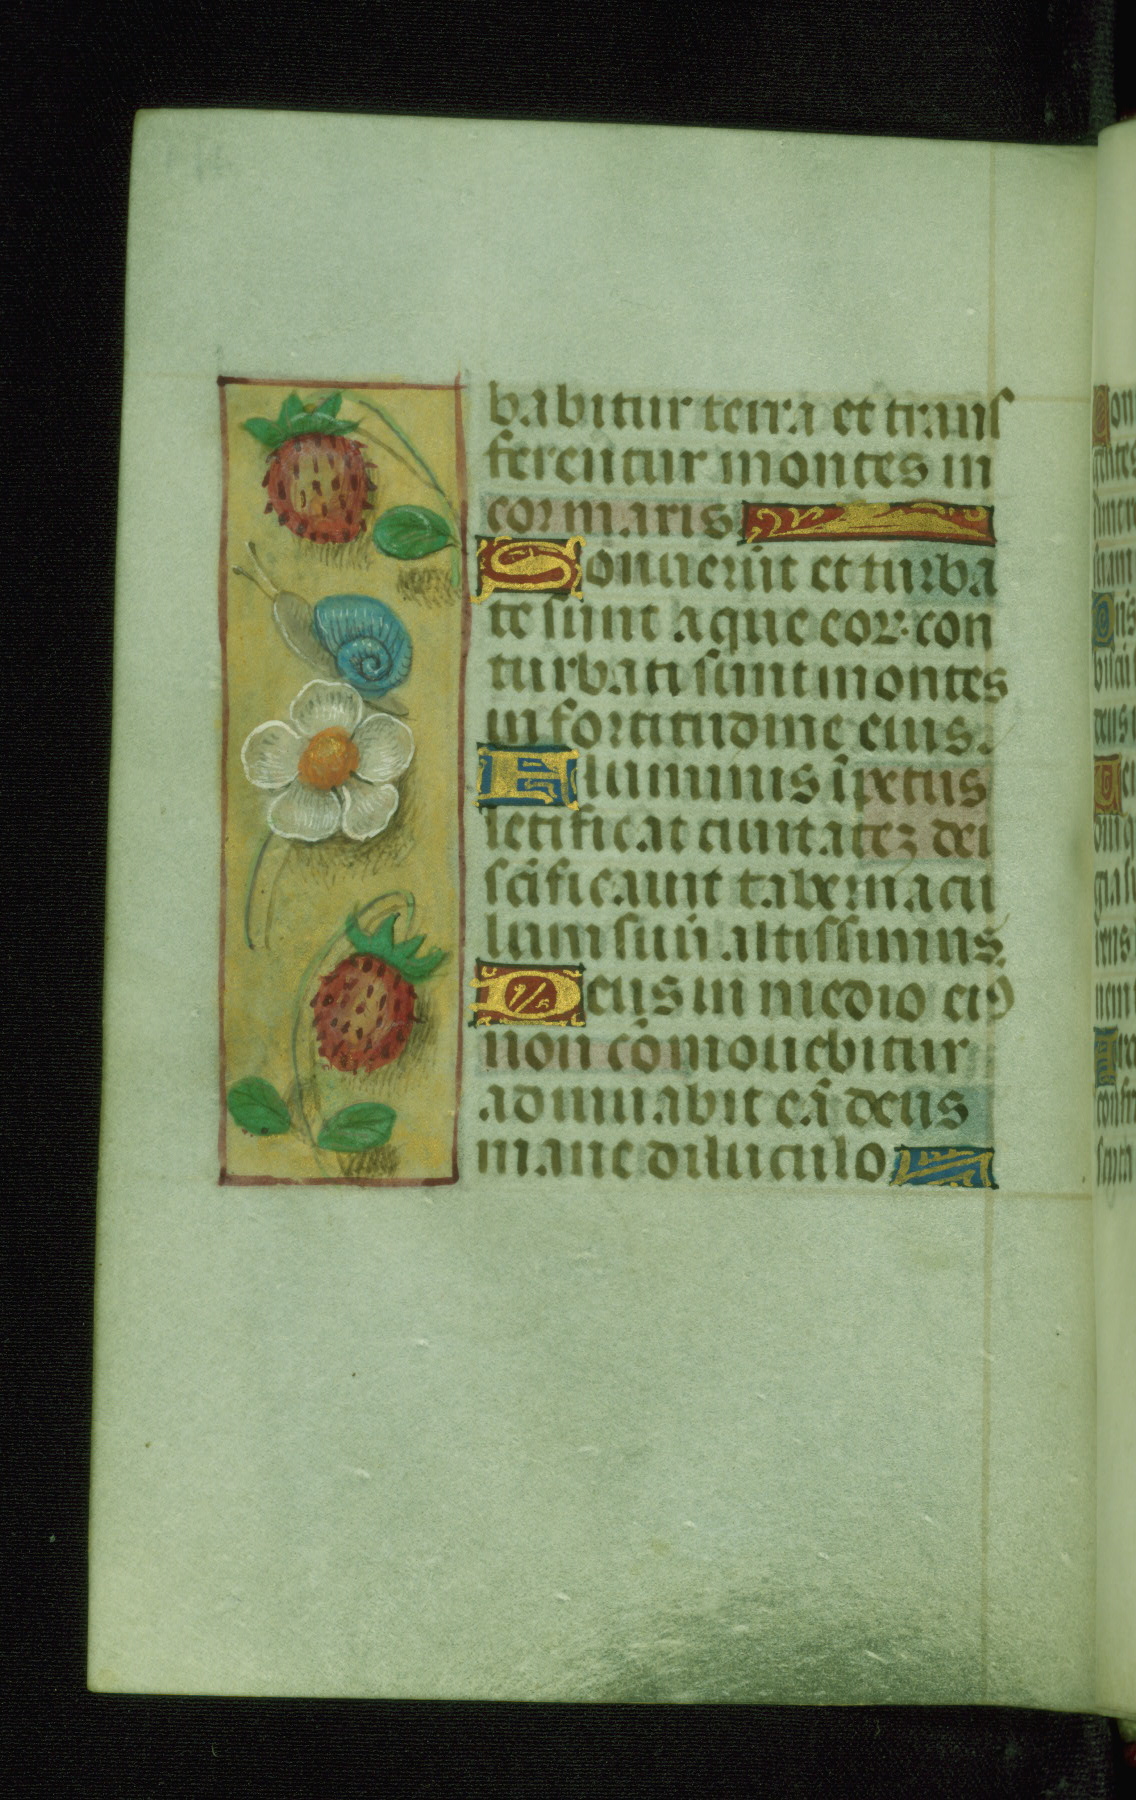 babitur terra et trans
ferentur montes in
cor maris
Sonuerūt et turba
te sunt aque eoꝝ con
turbati sunt montes
in fortitudine eius.
Fluminis īpetus
letificat ciuitatez dei
scīficauit tabernacu
lum suū altissimus.
Deus in medio eiꝰ
non cōmouebitur
adiuuabit eā deus
mane diluculo